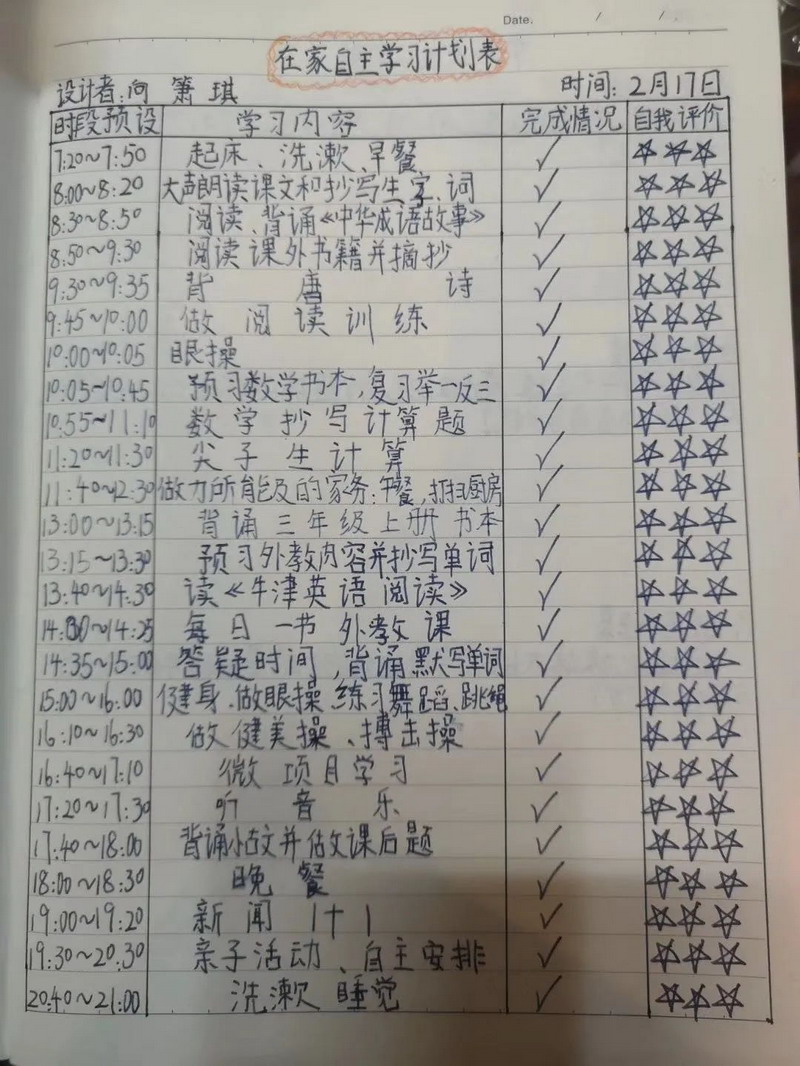 Date. / /
在家自主学习计划表
设计者:向箫琪 时间:2月17日
时段预设 学习内容 完成情况 自我评价
7:20~7:50 起床、洗漱、早餐 ✓ ☆☆☆
8:00~8:20 大声朗读课文和抄写生字、词 ✓ ☆☆☆
8:30~8:50 阅读、背诵《中华成语故事》 ✓ ☆☆☆
8:50~9:30 阅读课外书籍并摘抄 ✓ ☆☆☆
9:30~9:35 背唐诗 ✓ ☆☆☆
9:45~10:00 做阅读训练 ✓ ☆☆☆
10:00~10:05 眼操 ✓ ☆☆☆
10:05~10:45 预习数学书本,复习举一反三 ✓ ☆☆☆
10:55~11:10 数学抄写计算题 ✓ ☆☆☆
11:20~11:30 尖子生计算 ✓ ☆☆☆
11:40~12:30 做力所能及的家务:午餐,打扫厨房 ✓ ☆☆☆
13:00~13:15 背诵三年级上册书本 ✓ ☆☆☆
13:15~13:30 预习外教内容并抄写单词 ✓ ☆☆☆
13:40~14:30 读《牛津英语阅读》 ✓ ☆☆☆
14:00~14:25 每日一节外教课 ✓ ☆☆☆
14:35~15:00 答疑时间,背诵默写单词 ✓ ☆☆☆
15:00~16:00 健身、做眼操、练习舞蹈、跳绳 ✓ ☆☆☆
16:10~16:30 做健美操、搏击操 ✓ ☆☆☆
16:40~17:10 微项目学习 ✓ ☆☆☆
17:20~17:30 听音乐 ✓ ☆☆☆
17:40~18:00 背诵小古文并做课后题 ✓ ☆☆☆
18:00~18:30 晚餐 ✓ ☆☆☆
19:00~19:20 新闻1+1 ✓ ☆☆☆
19:30~20:30 亲子活动、自主安排 ✓ ☆☆☆
20:40~21:00 洗漱睡觉 ✓ ☆☆☆